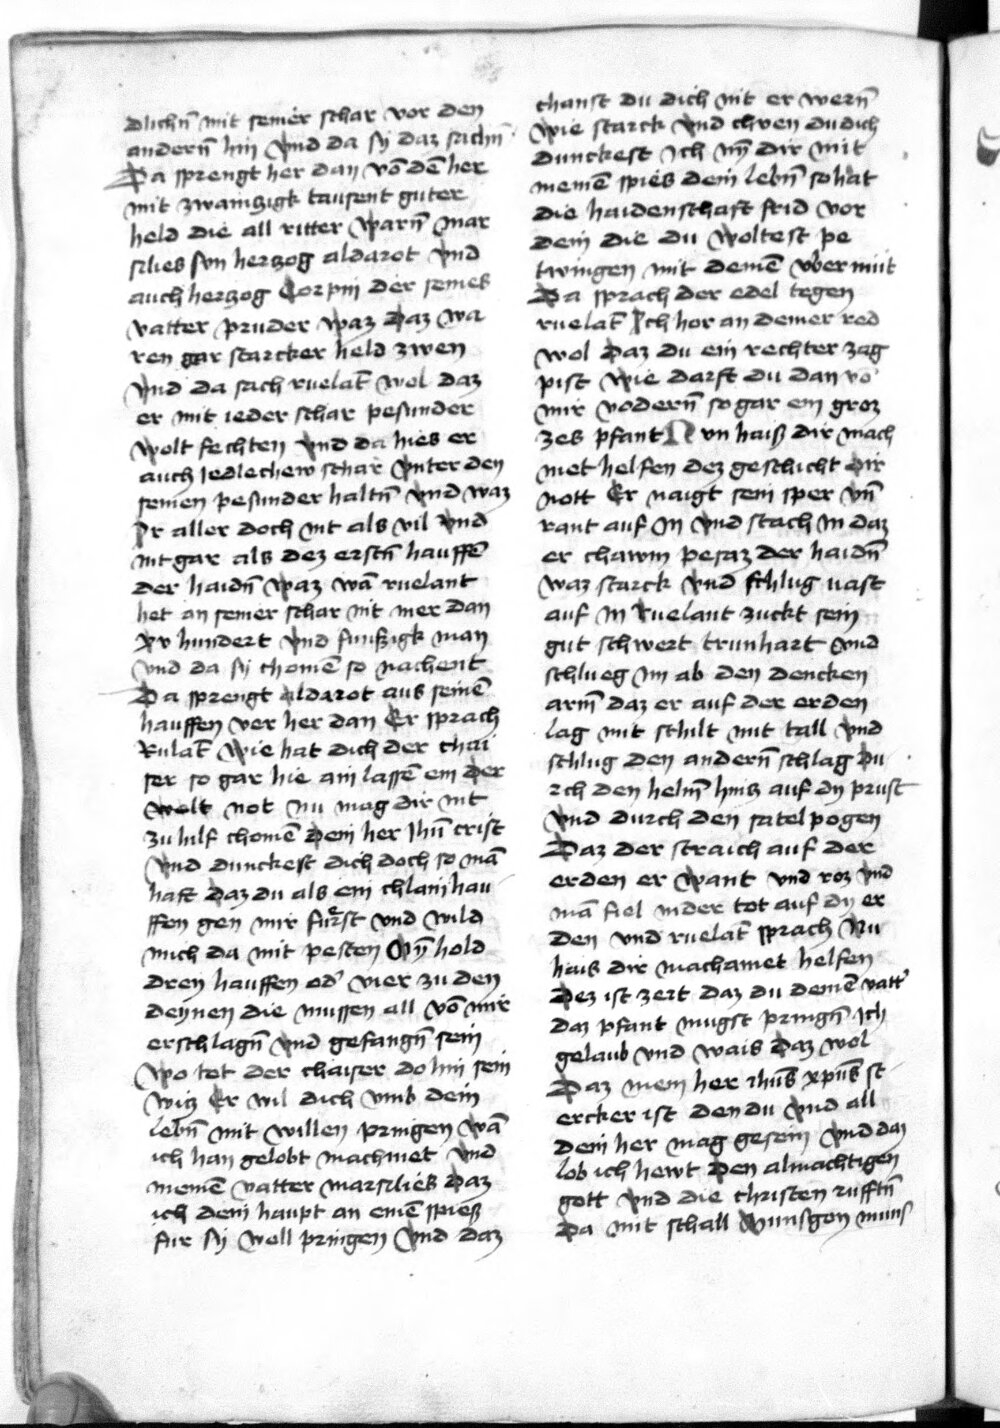 dlichn̄ mit seiner schar vor den
andern̄ hin vnd da sy daz sachn̄
Da sprengt her dan vō dē her
mit zwainzigk tausent guter
held die all ritter warn̄ mar
silies sun herzog aldarot vnd
auch herzog Corpin der seines
vatter pruder waz Daz wa
ren gar starcker held zwen
vnd da sach ruelāt wol daz
er mit ieder schar pesunder
wolt fechten vnd da hies er
auch Jedlichew schar vnter den
seinen pesunder haltn̄ vnd waz
Jr aller doch nit als vil vnd
nit gar als dez erstn̄ hauffē
der haidn̄ waz wā ruelant
het an seiner schar nit mer dan
xv hundert vnd funfzigk man
vnd da sy chomē so nachent
Da sprengt aldarot aus seinē
hauffen ver her dan Er sprach
Rulāt wie hat dich der chai
ser so gar hie ain lassē ein der
welt not nu mag dir nit
zu hilf chomē Dein her Jhū crist
vnd dunckest dich doch so mā
haft daz du als ein chlain hau
ffen gen mir furst vnd wild
mich da mit pesten Vn̄ hold
drey hauffen od' vier zu den
deynen die mussen all vō mir
erschlagn̄ vnd gefangn̄ sein
wo tot der chaiser do hin sein
wiz Er wil dich vmb dein
lebn̄ mit willen pringen wā
ich han gelobt machmet vnd
meinē vatter marsilies Daz
ich dein haupt an einē spiess
fur sy well pringen vnd daz
chanst du dich nit er wern̄
wie starck vnd chuen du dich
dunckest Ich nym̄ dir mit
meinē spies dein lebn̄ so hat
die haidenschaft frid vor
dein die du woltest pe
twingen mit deinē vbermut
Da sprach der edel tegen
ruelāt Ich hor an deiner red
wol Daz du ein rechter zag
pist wie darft du dan vō
mir vodern̄ so gar ein groz
zes pfant Nun haiß dir mach
met helfen dez geschicht dir
nott Er naigt sein sper vn̄
rant auf in vnd stach in daz
er chawm pesaz der haidn̄
waz starck vnd schlug vast
auf in Ruelant zuckt sein
gut schwert trunhart vnd
schlueg im ab den dencken
arm̄ daz er auf der erden
lag mit schilt mit tall vnd
schlug den andern̄ schlag du
rch den helm̄ hinz auf dy prust
vnd durch den satelpogen
Daz der straich auf der
erden er want vnd roz vnd
mā fiel nider tot auf dy er
den vnd ruelāt sprach Nu
hais dir machamet helfen
Dez ist zert daz du deinē vatt'
daz pfant mugst pringn̄ Ich
gelaub vnd wais Daz wol
Daz mein her ihūs xpūs st
ercker ist den du vnd all
dein her mag gesein vnd daz
lob ich hewt Den almachtigen
gott vnd die christen rufftn̄
Da mit schall Munsgoy muns